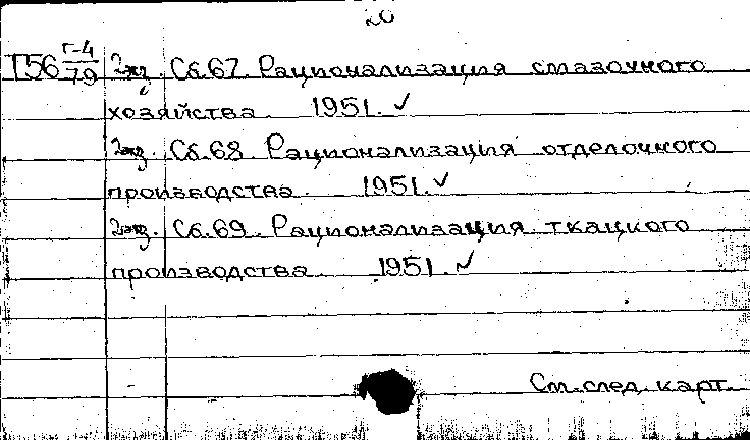 20
Т56 Г-4/79 2экз. Сб.67. Рационализация смазочного
хозяйства. 1951. ✓
2экз. Сб.68. Рационализация отделочного
производства. 1951. ✓
2экз. Сб.69. Рационализация ткацкого
производства 1951. ✓
См. след. карт.